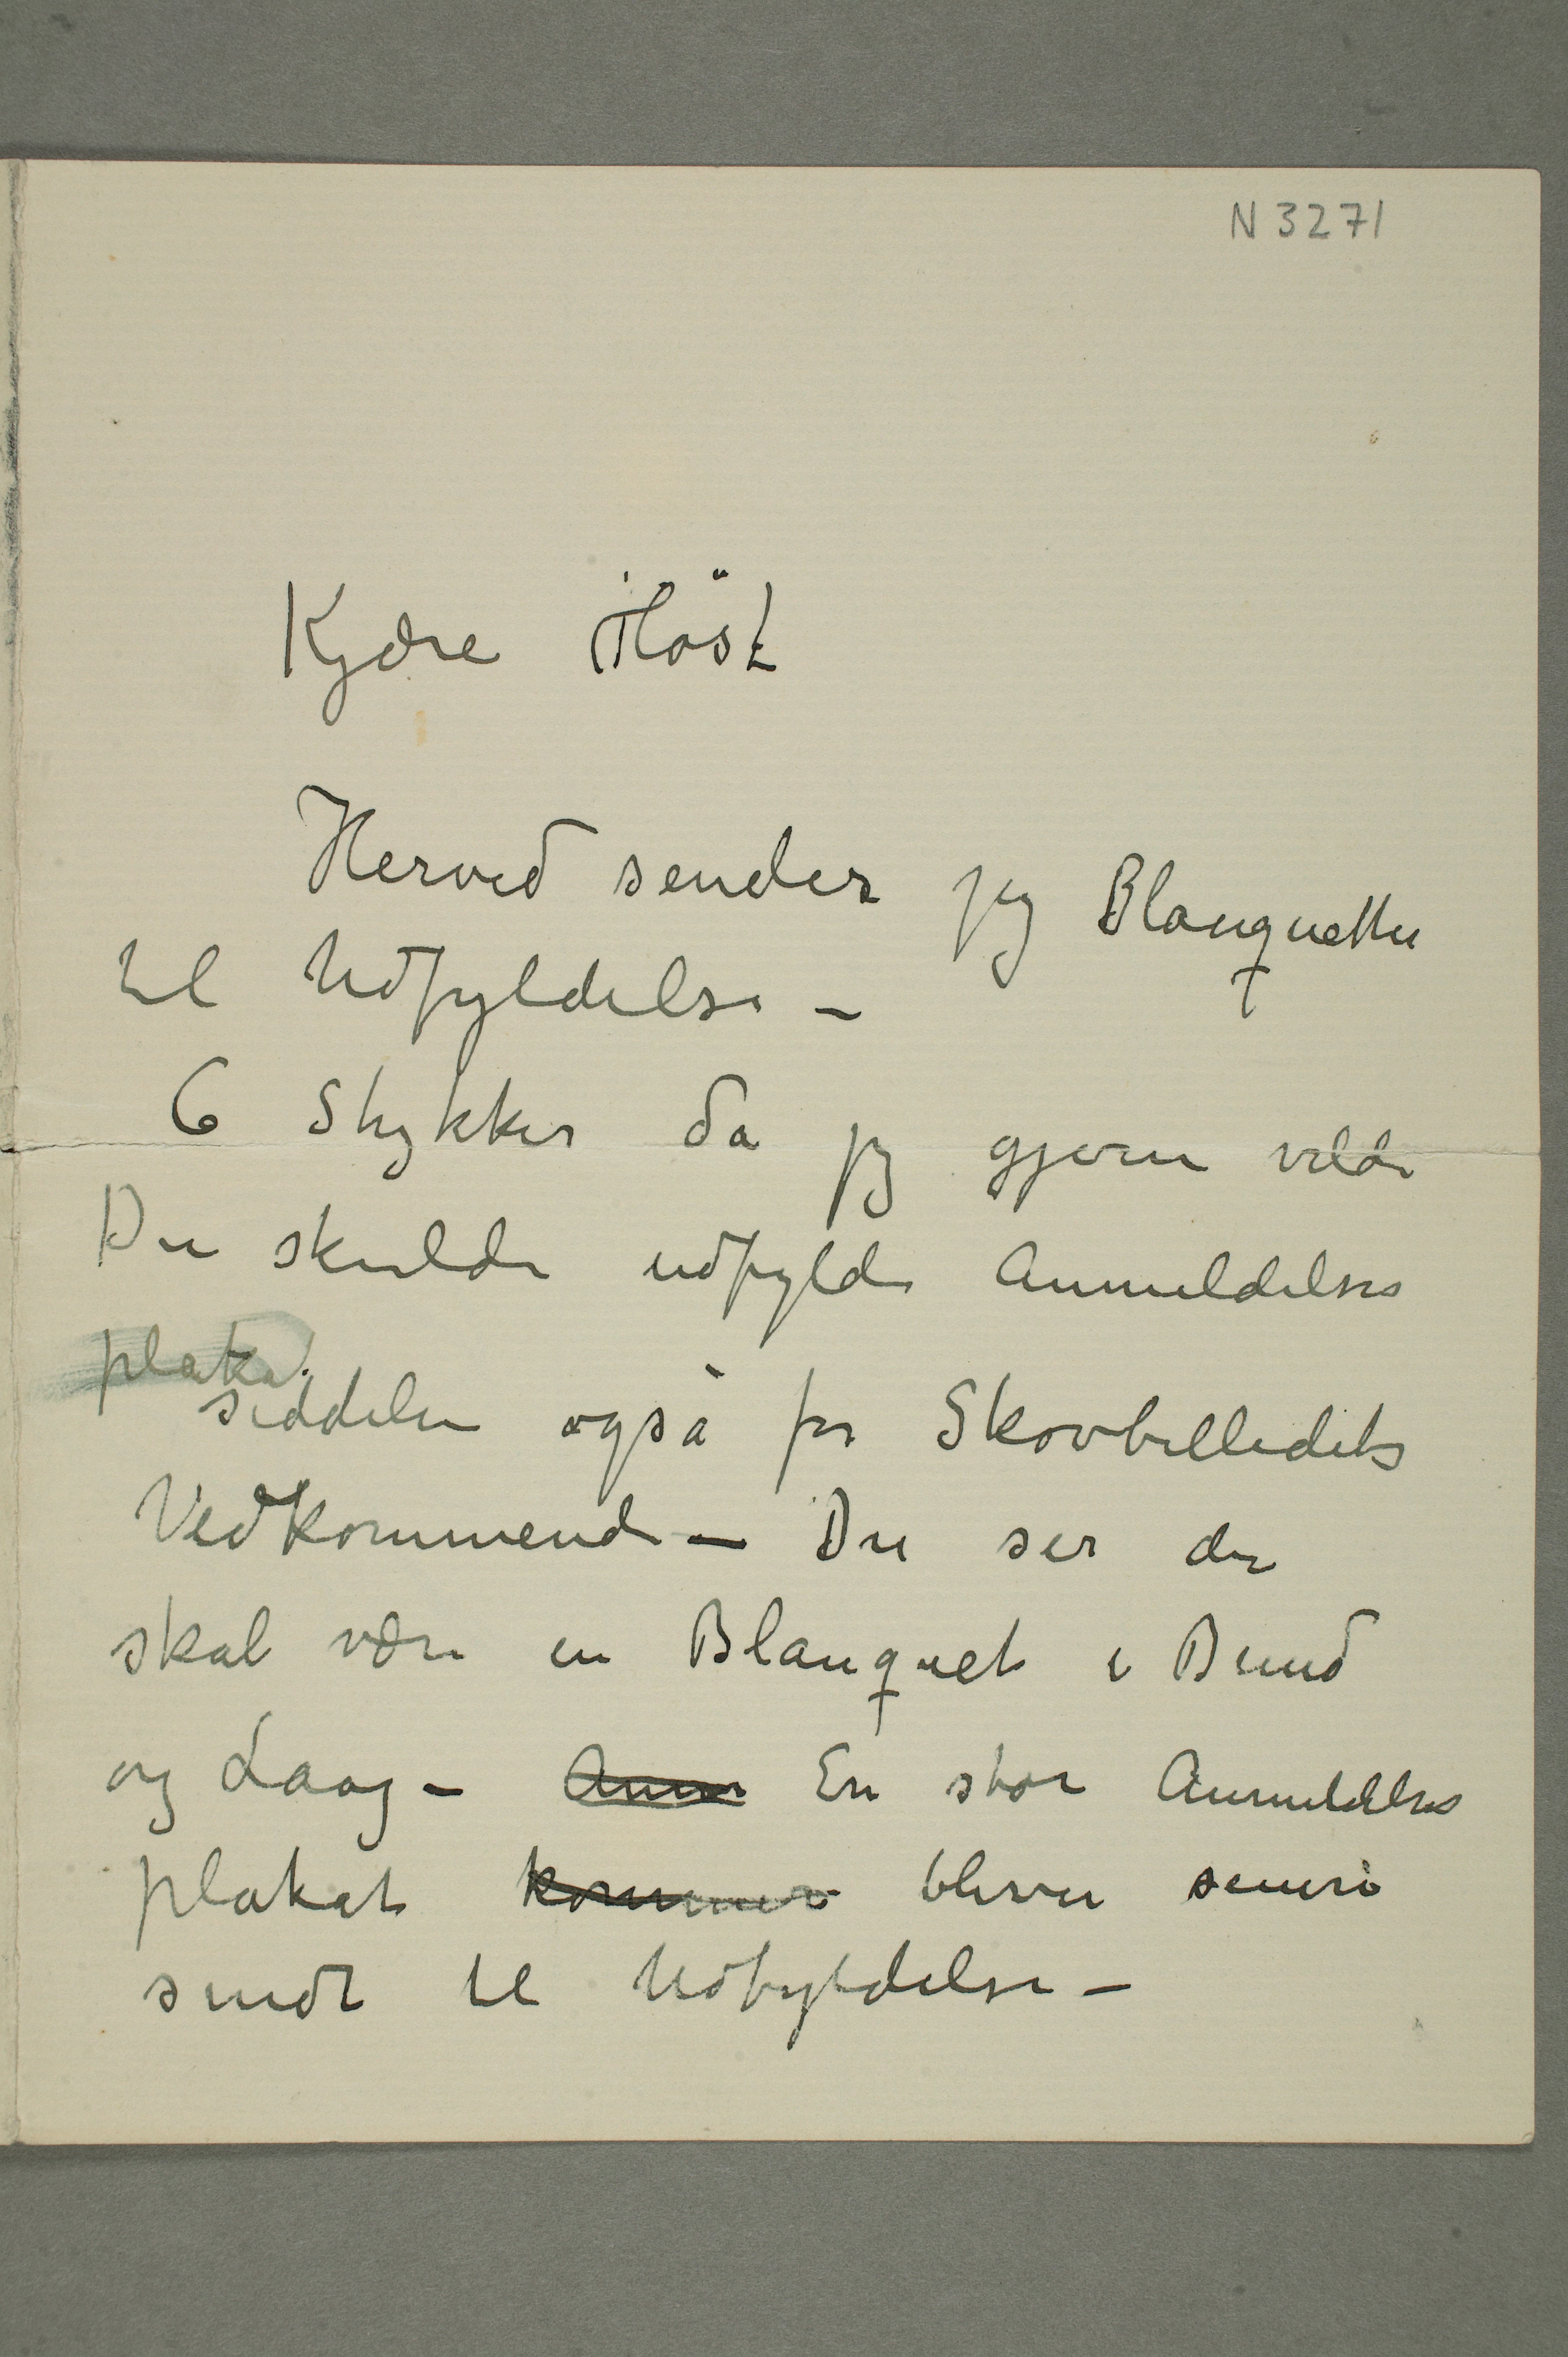 N 3271
Kjære Höst
Herved sender jeg Blanquetter
til Udfyldelse –
6 Stykker da jeg gjerne vilde
Du skulde udfylde Anmeldelses
plaka
seddelen også for Skovbilledets
Vedkommende – Du ser der
skal være en Blanquet i Bund
og Laag – Anm En stor Anmeldelses
plakat kommer bliver senere
sendt til Udfyldelse –